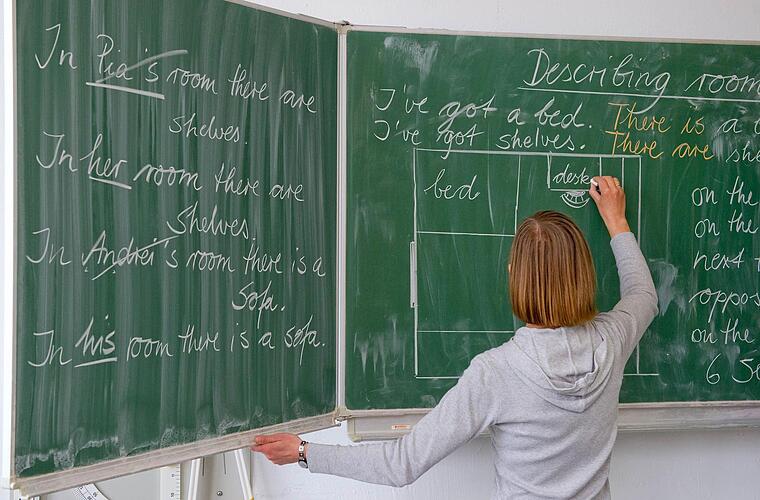 In Pia's room there are
shelves.
In her room there are
shelves.
In Andrei's room there is a
sofa.
In his room there is a sofa.
Describing room
I've got a bed. There is a
I've got shelves. There are she
bed
desk
on the
on the
next
oppos
on the
6 Se